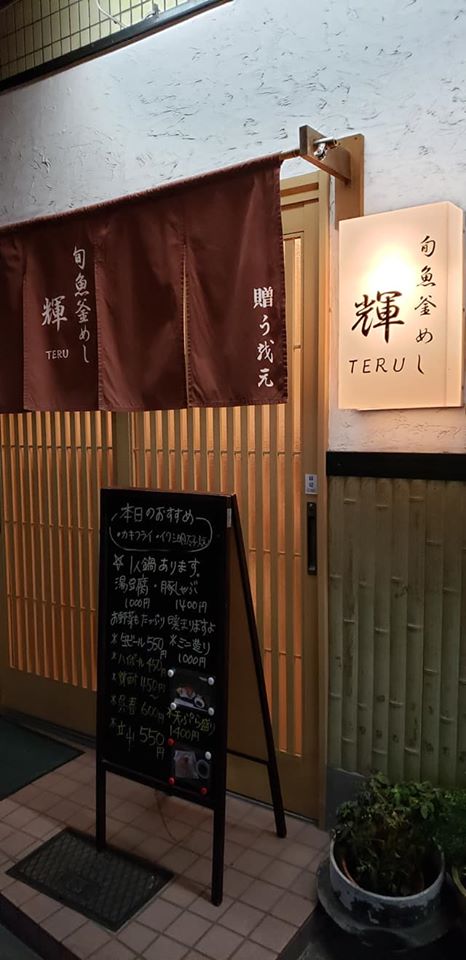 旬魚釜めし
輝
TERU
贈う我元
旬魚釜めし
輝
TERU
本日のおすすめ
・カキフライ
☆1人鍋あります。
湯豆腐・豚しゃぶ
1000円 1400円
お野菜もたっぷり 暖まりますよ
*生ビール550円
*ハイボール450円
*ミニ造り
1000円
600円
*立山550円
*天ぷら盛り
1400円